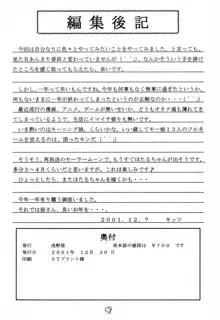 編集後記
今回は自分なりに色々とやってみたいことをやってみました。と言っても、
見た目あんまり普段と変わっていませんが（＾＾；）、なんかそういう手を掛け
たところを感じ取ってもらえたら、幸いです。
しかし、一年って早いもんですね。今年も何事もなく無事に過ぎたというか、
何もないままに一年が終わってしまったというのが正解なのか・・・（＾＾；）
最近流行の漫画、アニメ、ゲームが無いせいでしょうか、どうもオタク魂も薄れ
てきてしまっているようで、生活にイマイチ張りも無いです。
いま熱いのはモーニング娘。くらいかな。いい歳してモー娘１３人のフルネ
ームを言えるのは、困ったモンだ（＾＾；）。
そうそう、再放送のセーラームーンで、もうすぐほたるちゃんが出そうです。
多分３～４月くらいだと思いますが、これは楽しみです♪
ひょっとしたら、またほたるちゃんを描くかも・・・。
今年一年有り難う御座いました。
それでは皆さん、良いお年を・・・。
２００１．１２．？　キッツ
奥付
発行　浅野屋　　本本誌の値段は　￥７００　です
発行日　２００１年　１２月　３０日
印刷　ＳＴプリント様